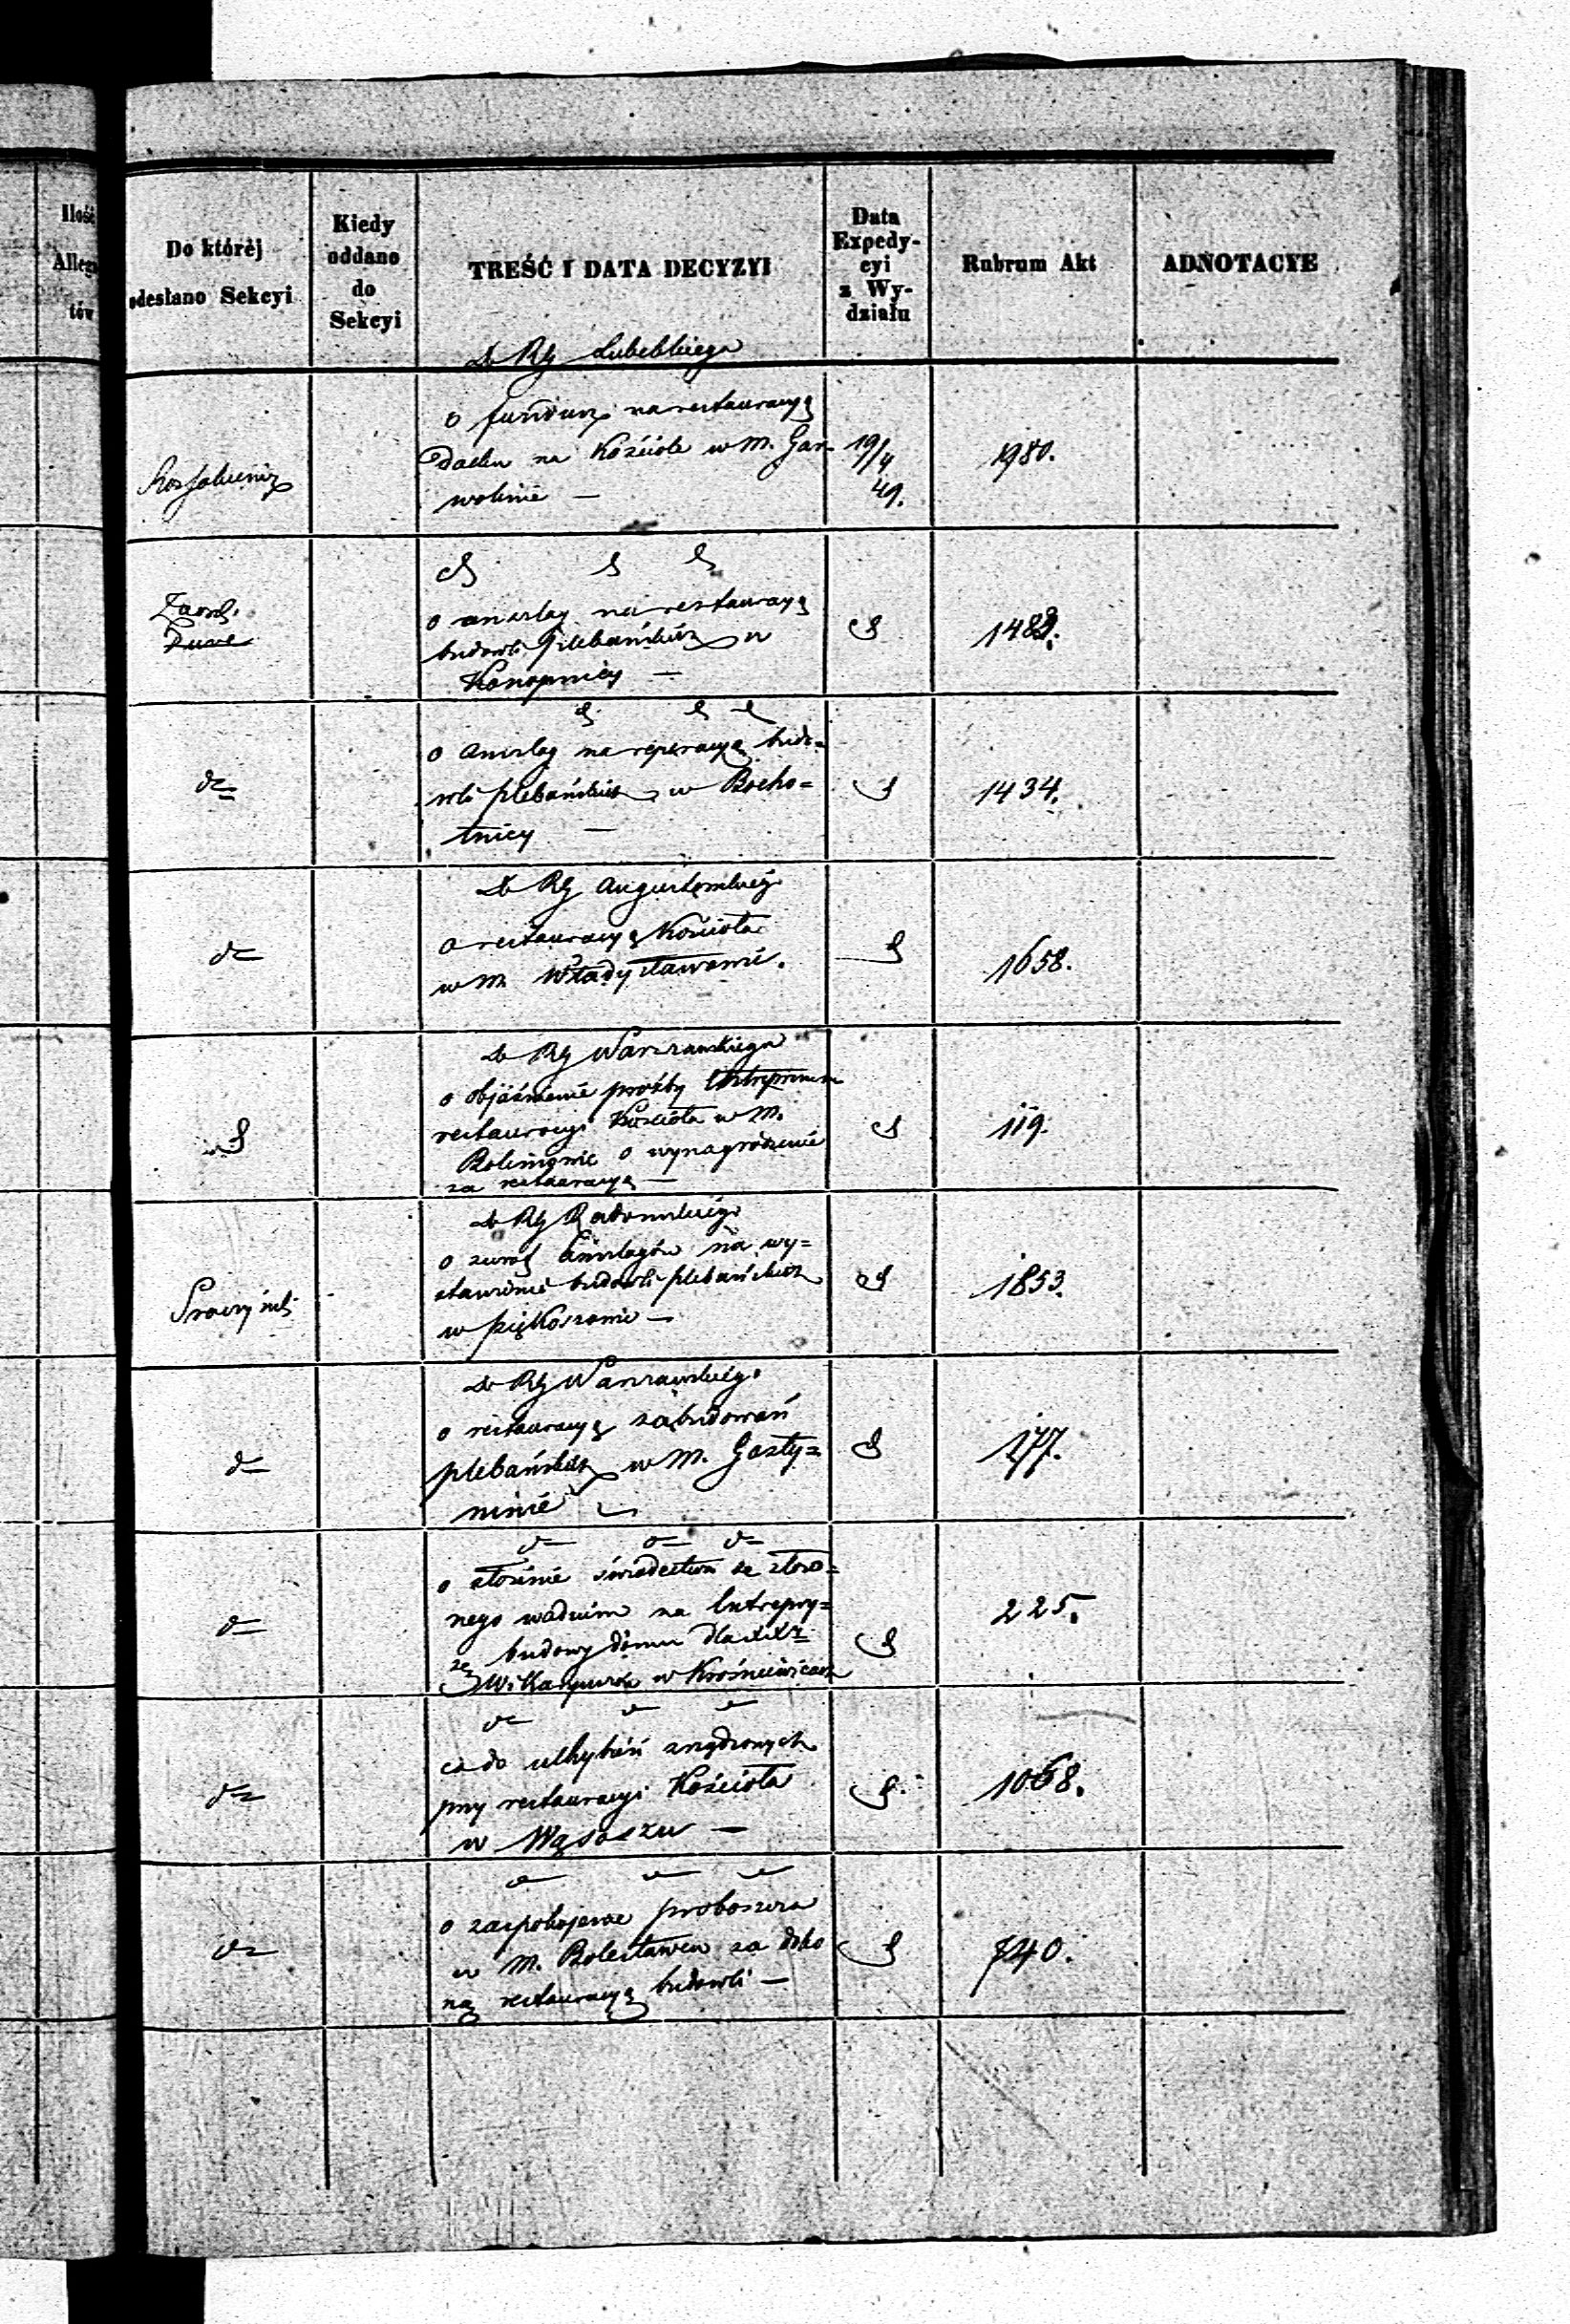 Ilość
Allega
tów
Do któréj
odesłano Sekcyi
Kiedy
oddano
do
Sekcyi
TREŚĆ I DATA DECYZYI
Data
Expedy-
cyi
z Wy-
działu
Rubrum Akt
ADNOTACYE
Do RG Lubelskiego
o fundusz na restauracyą
Dachu na Kościele w M. Gar-
wolinie —
19/4
49.
1980.
o anszlag na restauracyą
budowli plebańskich w
Konopnicy —
o anszlag na reperacyą budo=
wli plebańskich w Bocho=
tnicy —
1434.
Do RG Augustowskiego
o restauracyą Kościoła
w M. Władysławowie.
1658.
Do RG Warszawskiego
o objaśnienie prośby
restauracyi Kościoła w M.
Bolimowie o wynagrodzenie
za restauracyą —
119.
Do RG Radomskiego
o zwrot anszlagów na wy=
stawienie budowli plebańskich
w Piękoszowie —
1853.
Do RG Warszawskiego
o restauracyą zabudowań
plebańskich w M. Gosty=
ninie
177.
o złożenie świadectwa ze złożo=
nego wadium na Entrepry=
zę budowy domu dla
Wikaryuszów w Krośniewicach
225.
co do uchybień zrządzonych
przy restauracyi Kościoła
w Wąsoszu —
1068.
o zaspokojenie proboszcza
w M. Bolesławcu za doko
ną restauracyą budowli —
740.